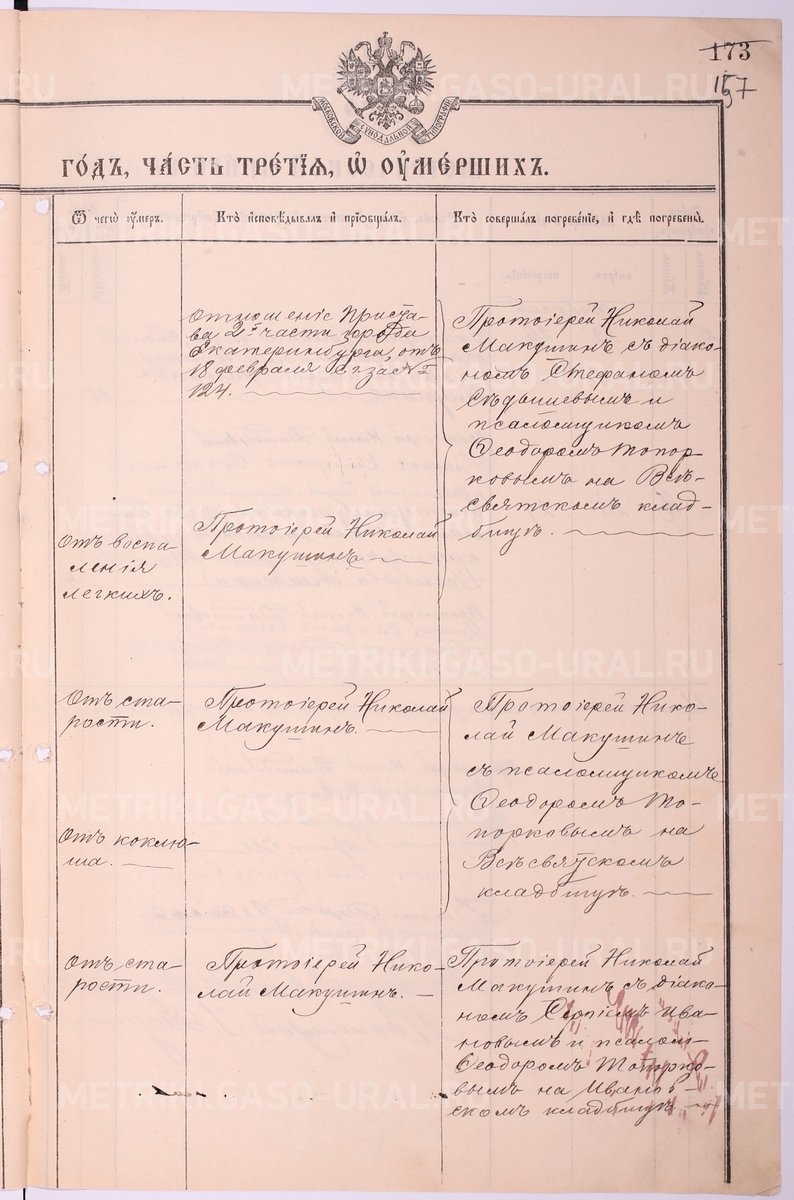 173
157
МОСКОВСКОЙ СѴНОДАЛЬНОЙ ТИПОГРАФІИ
ГОДЪ, ЧАСТЬ ТРЕТІЯ, Ѿ ОУМЕРШИХЪ.
Ѿ чегѡ оумеръ.
Кто исповѣдывалъ и пріобщалъ.
Кто совершалъ погребеніе, и гдѣ погребены.
Отношеніе Приста-
ва 2й части города
Екатеринбурга, отъ
18 февраля с. г. за №
124.
Протоіерей Николай
Макушинъ съ діако-
номъ Стефаномъ
Сѣдышевымъ и
псаломщикомъ
Ѳеодоромъ Топор-
ковымъ на Всѣ-
святскомъ клад-
бищѣ.
Отъ воспа-
ленія
легкихъ.
Протоіерей Николай
Макушинъ
Отъ ста-
рости.
Протоіерей Николай
Макушинъ.
Протоіерей Нико-
лай Макушинъ
съ псаломщикомъ
Ѳеодоромъ То-
порковымъ на
Всѣсвятскомъ
кладбищѣ.
Отъ коклю-
ша.
Отъ ста-
рости.
Протоіерей Нико-
лай Макушинъ.
Протоіерей Николай
Макушинъ съ діако-
номъ Сергіемъ Ива-
новымъ и псалом-
Ѳеодоромъ Топорко-
вымъ на Иванов-
скомъ кладбищѣ
METRIKI.GASO-URAL.RU